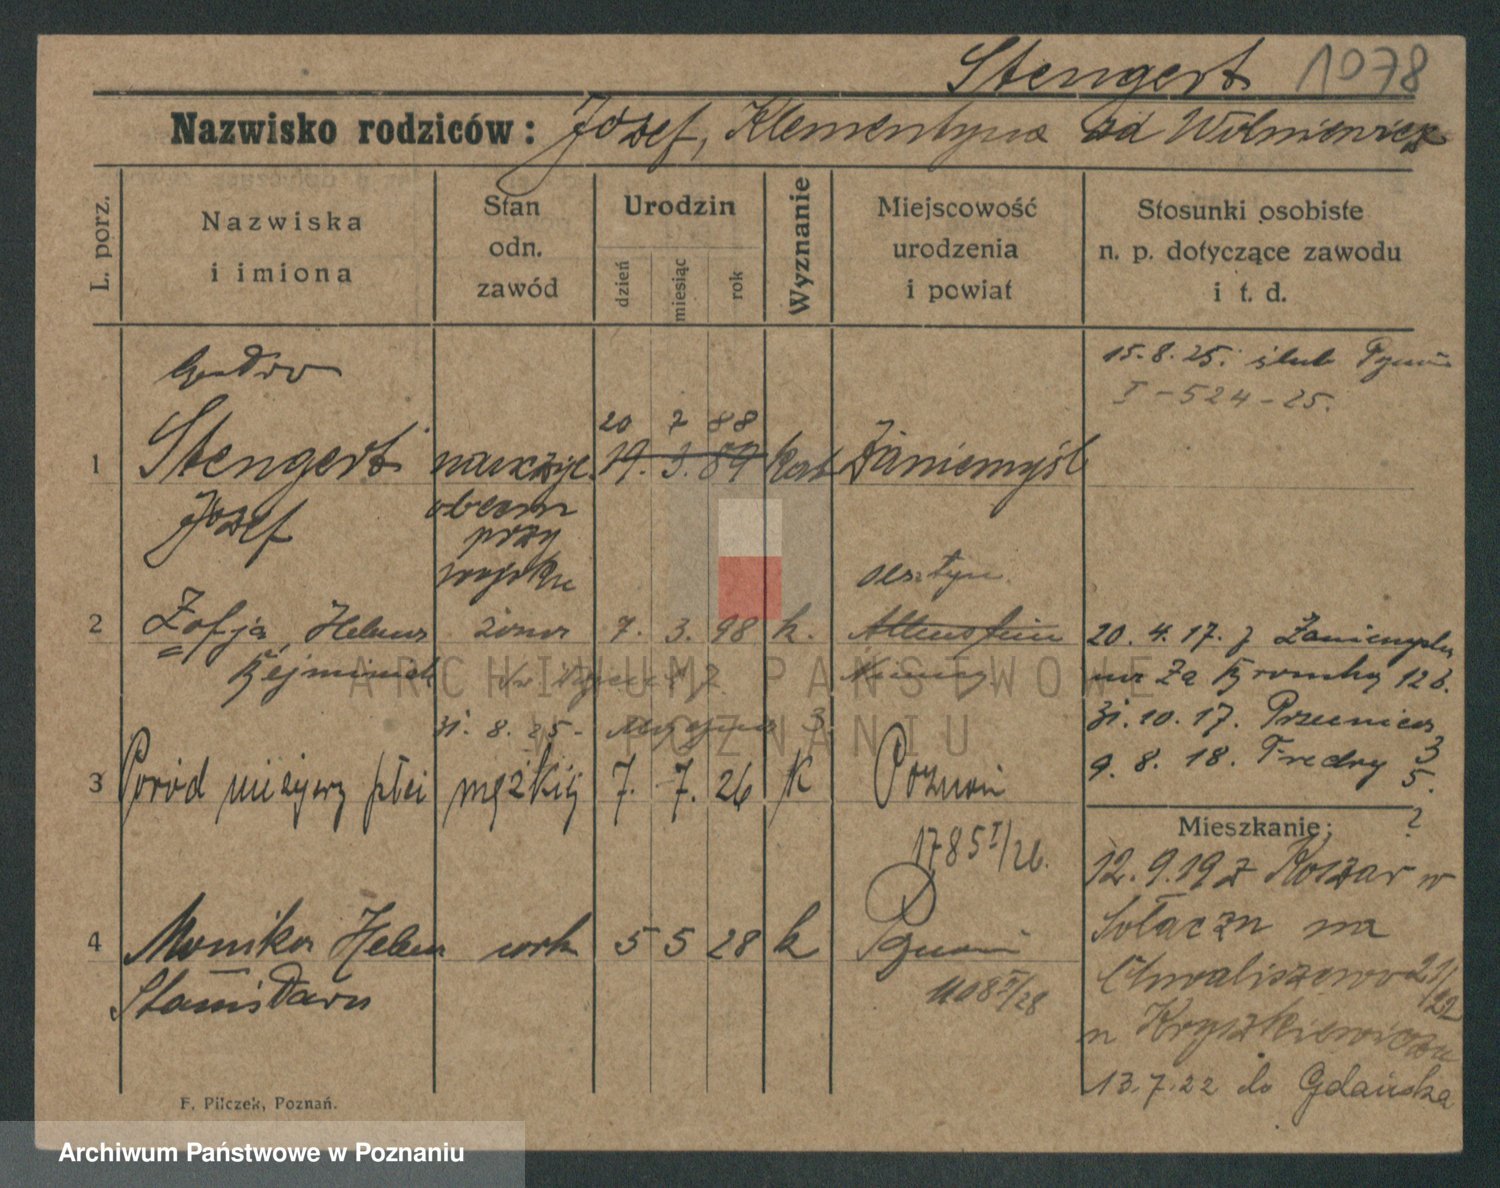 Stengert 1078
Nazwisko rodziców: Józef, Klementyna
L. porz.
Nazwiska
i imiona
Stan
odn.
zawód
Urodzin
dzień
miesiąc
rok
Wyznanie
Miejscowość
urodzenia
i powiat
Stosunki osobiste
n. p. dotyczące zawodu
i t. d.
15.8.25. ślub
I-524-25.
20 7 88
1 Stengert 19. 3. 89 kat Zaniemyśl
Józef
obecnie
przy
wojsku
Olsztyn
2 Zofja, Helena żona 7. 3. 98 k. Allenstein
20. 4. 17. z Zaniemyśla
na Za Gromby 12b.
31. 8. 25-
31. 10. 17. Pszenicza 3
9. 8. 18. Fredry 5.
3 Poród nieżywy płci męzkiej 7. 7. 26 k Poznań
1785 I/26.
Mieszkanie:
?
12.9.19 z Koszar w
Sołaczu na
Chwaliszewo 21/22
4 Monika Helena 5 5 28 k
Stanisława
1108 I/28
13.7.22 do Gdańska
F. Pilczek, Poznań.
ARCHIWUM PAŃSTWOWE
W POZNANIU
Archiwum Państwowe w Poznaniu